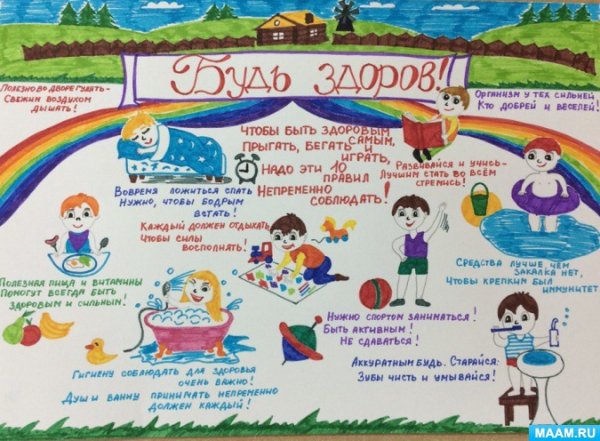 Будь здоров!
Полезно во дворе гулять-
Свежим воздухом
дышать!
Организм у тех сильней
Кто добрей и веселей!
Чтобы быть здоровым
самым,
Прыгать, бегать и
играть,
Надо эти 10
правил
Непременно
соблюдать!
Развивайся и учись-
Лучшим стать во всём
стремись!
Вовремя ложиться спать
Нужно, чтобы бодрым
встать!
Каждый должен отдыхать,
Чтобы силы
восполнять!
Средства лучше, чем
закалка нет,
Чтобы крепким был
иммунитет!
Полезная пища и витамины
Помогут всегда быть
здоровым и сильным!
Нужно спортом заниматься!
Быть активным!
Не сдаваться!
Гигиену соблюдать для здоровья
очень важно!
Душ и ванну принимать непременно
должен каждый!
Аккуратным будь. Старайся:
Зубы чисть и умывайся!
MAAM.RU